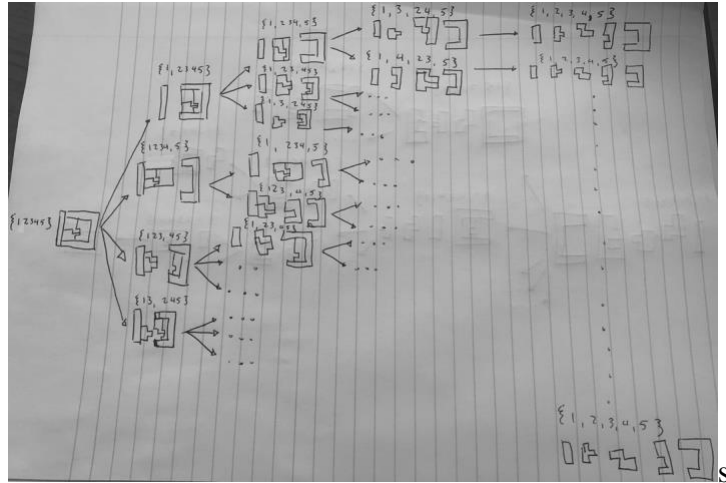 {1, 234, 5}
{1, 3, 24, 5}
{1, 2, 3, 4, 5}
{1, 2345}
{1, 23, 45}
{1, 4, 23, 5}
{1, 2, 3, 4, 5}
{1, 3, 245}
{1234, 5}
{1, 234, 5}
{123, 4, 5}
{12345}
{123, 45}
{1, 23, 45}
{13, 245}
{1, 2, 3, 4, 5}
s